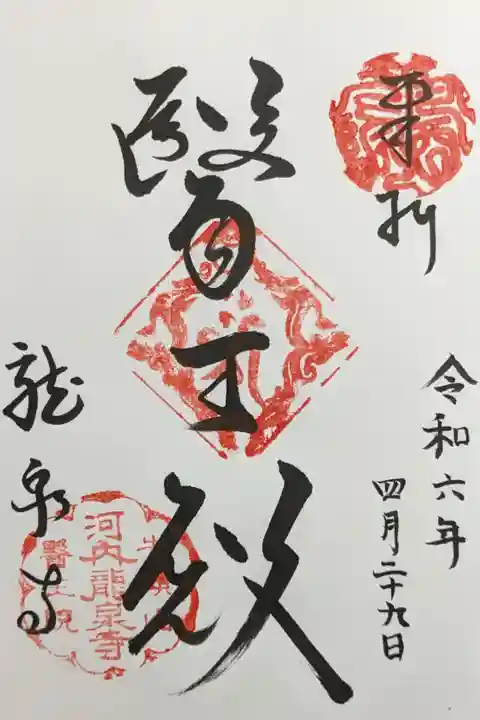 奉拝
令和六年
四月二十九日
醫王殿
龍泉寺
河内龍泉寺
牛頭山
醫王院